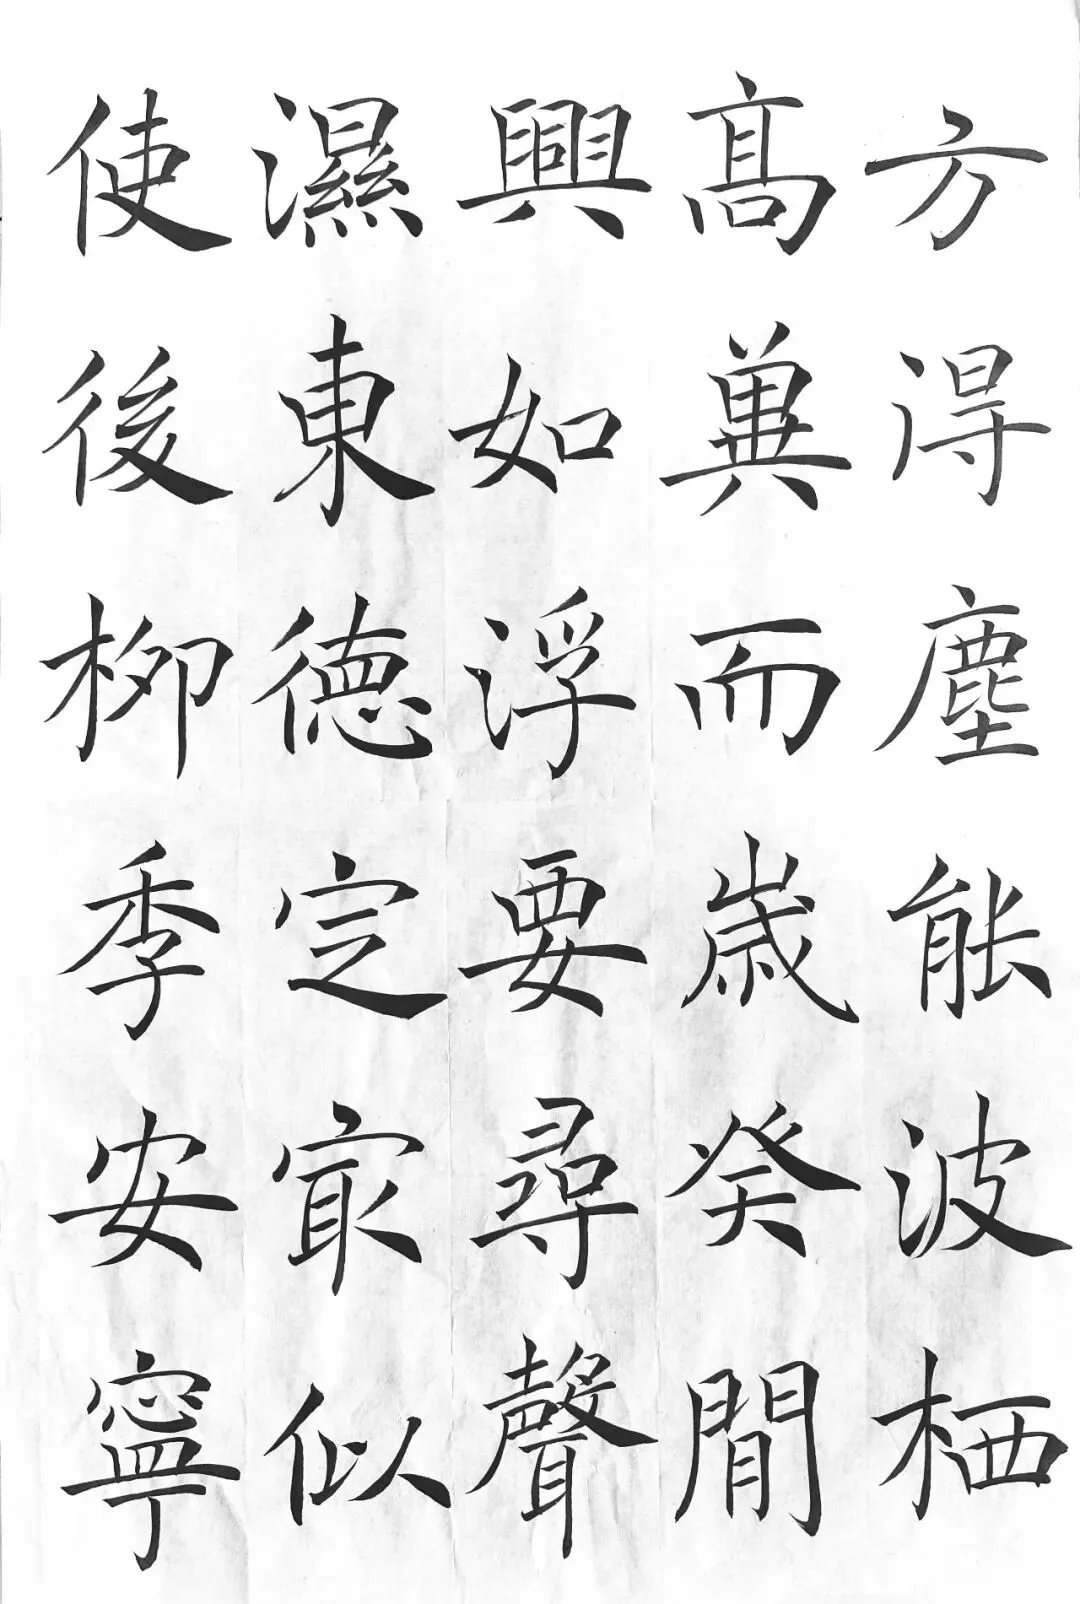 方淂塵能波栖
髙冀而歲癸閒
興如浮要尋聲
濕東徳定㝡似
使後柳季安寧